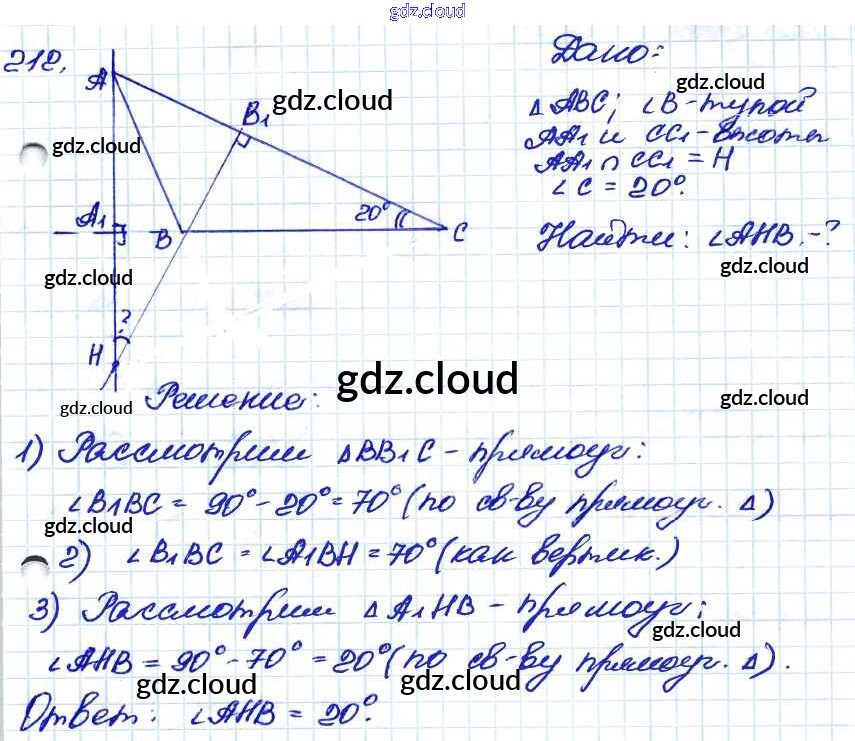 gdz.cloud
212.
Дано:
gdz.cloud
A
B₁
gdz.cloud
△ABC; ∠B-тупой
gdz.cloud
AA₁ и CC₁-высоты
AA₁ ∩ CC₁ = H
∠C = 20°.
20°
A₁
B
C
Найти: ∠AHB.-?
gdz.cloud
gdz.cloud
?
H
gdz.cloud
gdz.cloud
gdz.cloud
Решение:
1) Рассмотрим △BB₁C - прямоуг:
∠B₁BC = 90°-20°=70° (по св-ву прямоуг. △)
gdz.cloud
2) ∠B₁BC = ∠A₁BH = 70° (как вертик.)
3) Рассмотрим △A₁HB - прямоуг;
gdz.cloud
∠AHB = 90°-70° = 20° (по св-ву прямоуг. △).
gdz.cloud
gdz.cloud
Ответ: ∠AHB = 20°.